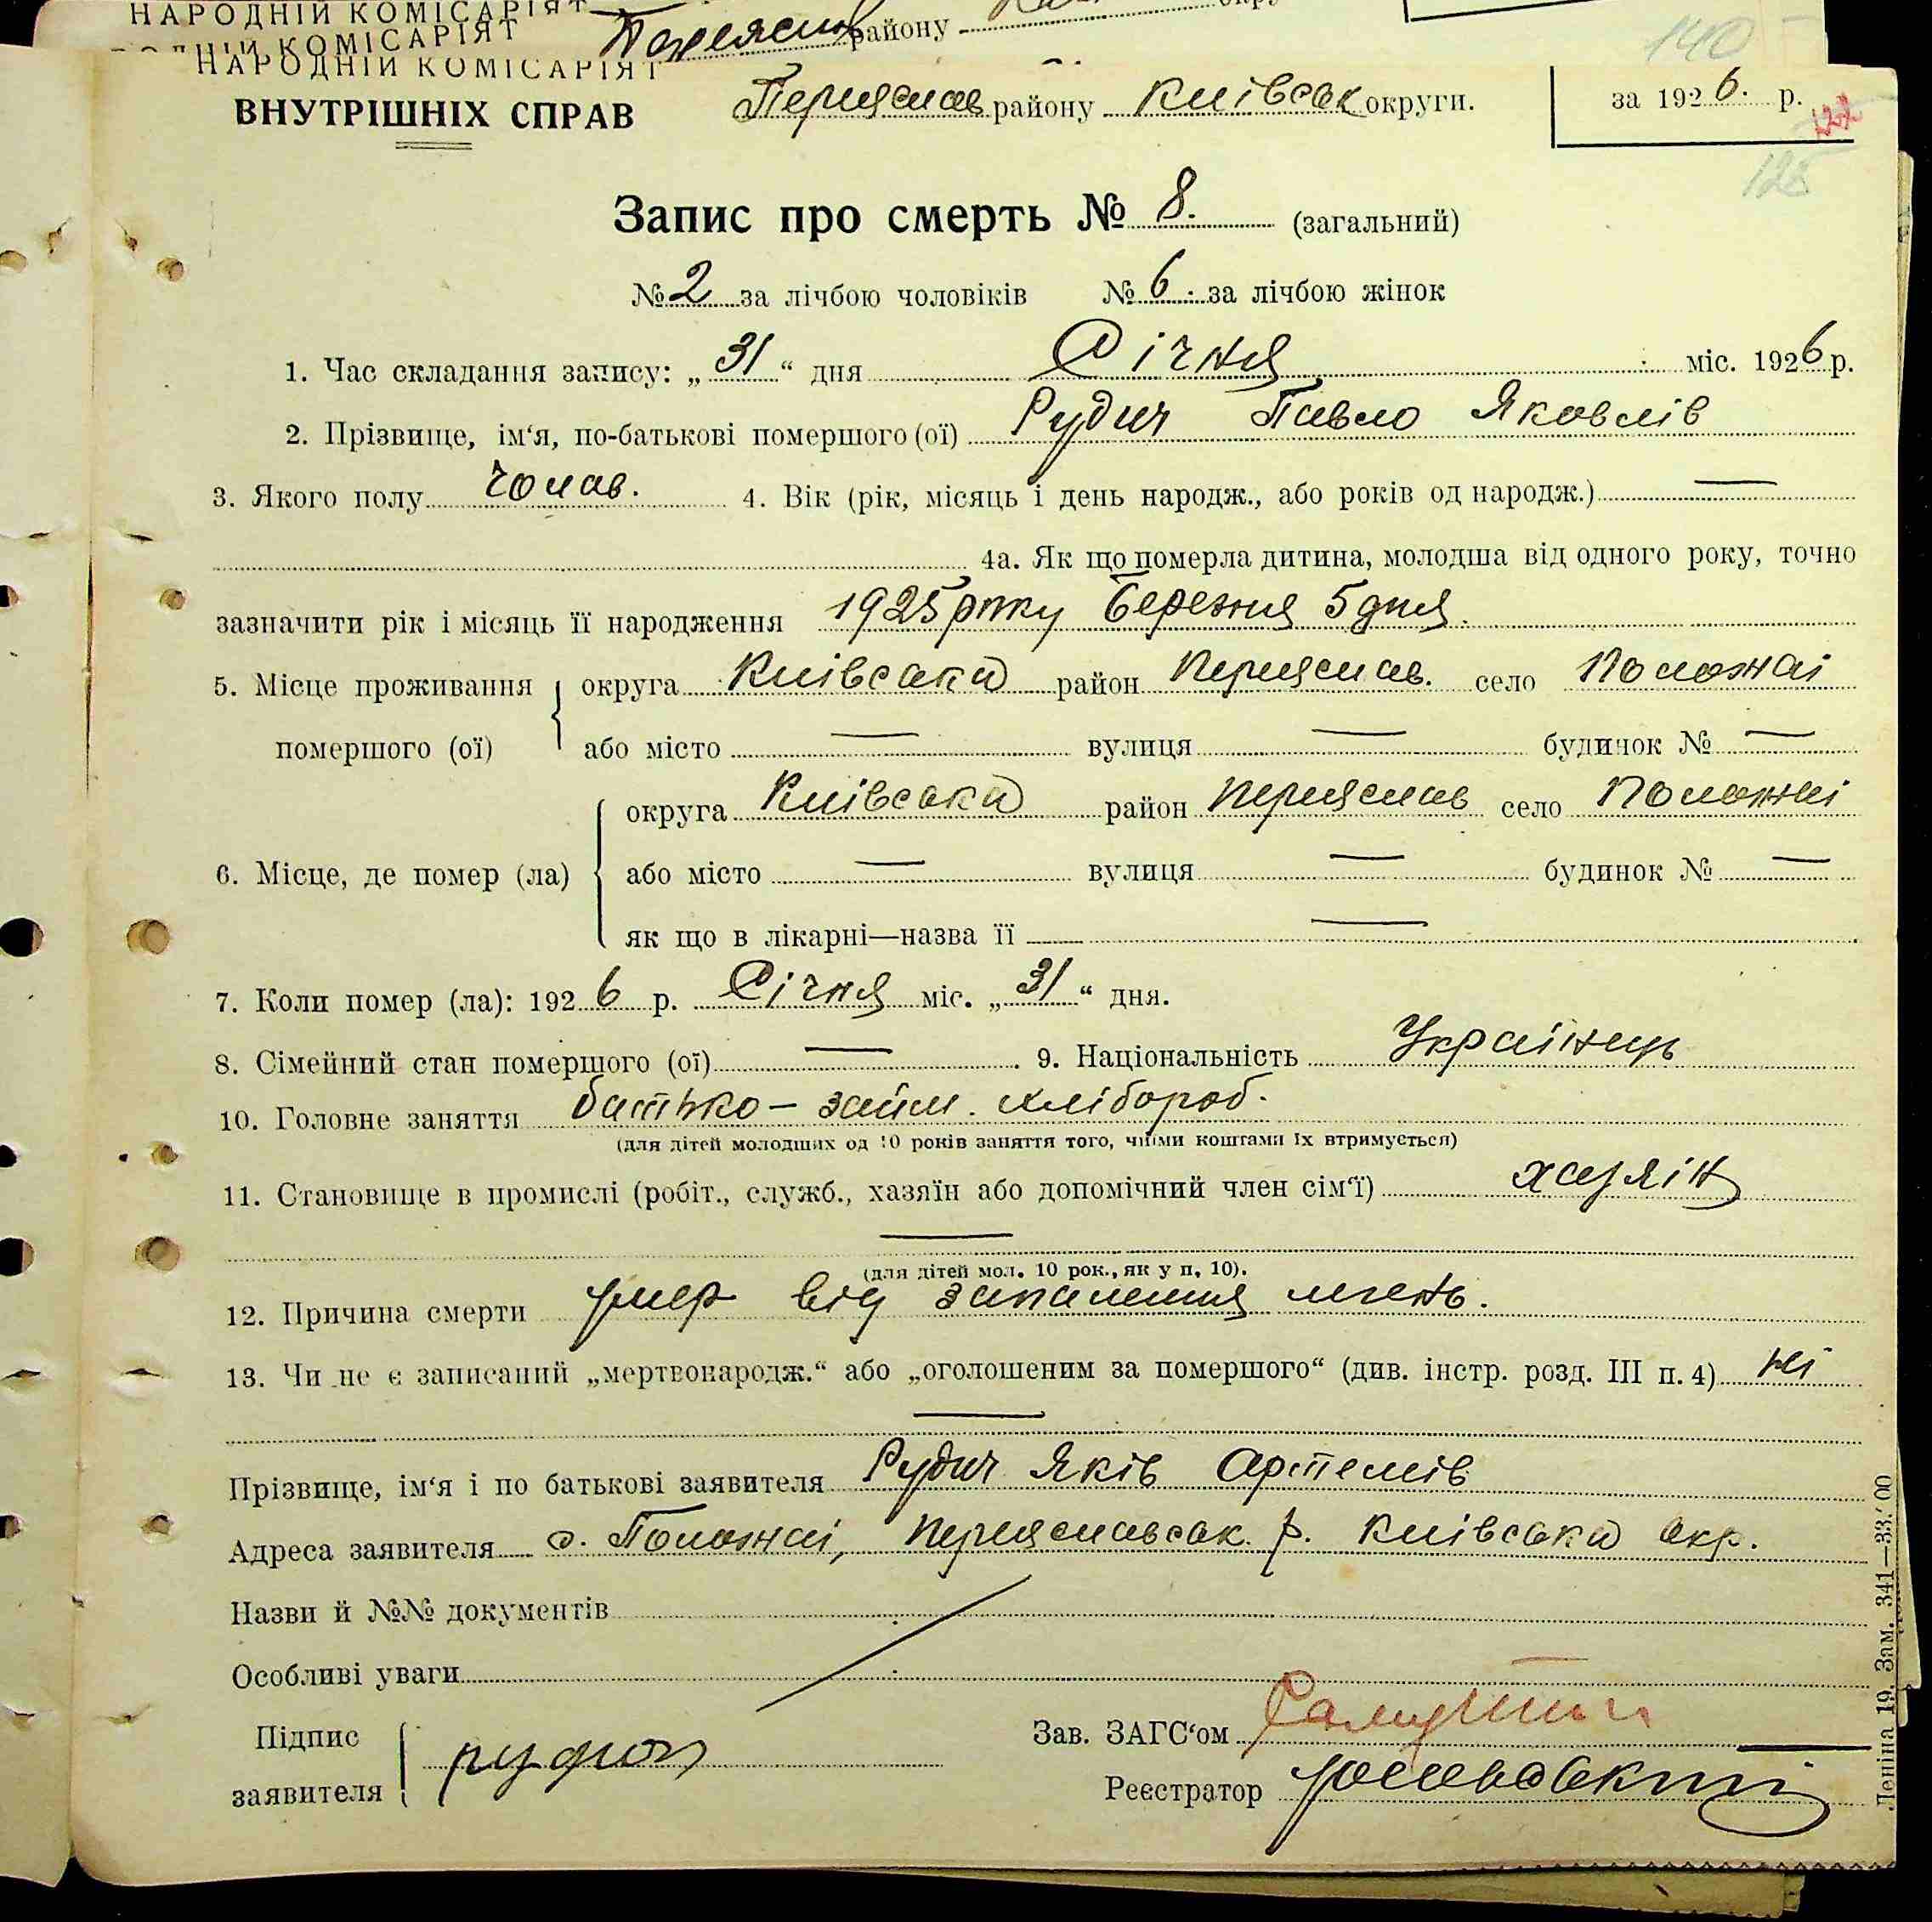 НАРОДНІЙ КОМІСАРІЯТ
НАРОДНІЙ КОМІСАРІЯТ
району
140
НАРОДНІЙ КОМІСАРІЯТ
ВНУТРІШНІХ СПРАВ
Переяслав району Київськ округи.
за 1926. р.
125
Запис про смерть № 8. (загальний)
№ 2 за лічбою чоловіків № 6. за лічбою жінок
1. Час складання запису: „31“ дня Січня міс. 1926 р.
2. Прізвище, ім‘я, по-батькові помершого (ої) Рудич Павло Яковлів
3. Якого полу чолов. 4. Вік (рік, місяць і день народж., або років од народж.) —
4а. Як що померла дитина, молодша від одного року, точно
зазначити рік і місяць її народження 1925 року Березня 5 дня.
5. Місце проживання помершого (ої) округа Київська район Переяслав. село Положаі
або місто — вулиця — будинок № —
6. Місце, де помер (ла) округа Київська район Переяслав село Положаі
або місто — вулиця — будинок № —
як що в лікарні—назва її —
7. Коли помер (ла): 1926 р. Січня міс. „31“ дня.
8. Сімейний стан помершого (ої) — . 9. Національність Українець
10. Головне заняття батько – займ. хлібороб.
(для дітей молодших од 10 років заняття того, чиїми коштами їх втримується)
11. Становище в промислі (робіт., служб., хазяїн або допомічний член сім‘ї) хазяін
—
(для дітей мол. 10 рок., як у п. 10).
12. Причина смерти умер від запалення легень.
13. Чи не є записаний „мертвонародж.“ або „оголошеним за помершого“ (див. інстр. розд. III п. 4) ні
—
Прізвище, ім‘я і по батькові заявителя Рудич Яків Артемів
Адреса заявителя с. Положаі, Переяславськ. р. Київська окр.
Назви й №№ документів
Особливі уваги
Підпис заявителя
Зав. ЗАГС‘ом
Реєстратор
Леніна 19. Зам. 341—33.